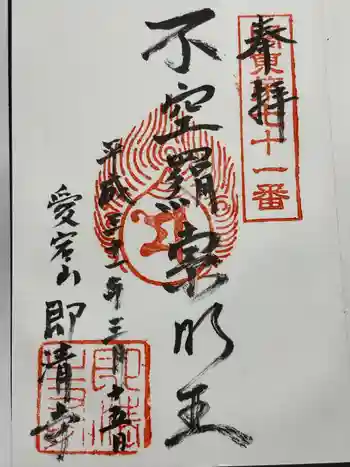 奉拝
關東第七十一番
不空羂索明王
平成三十一年三月十五日
愛宕山即清寺